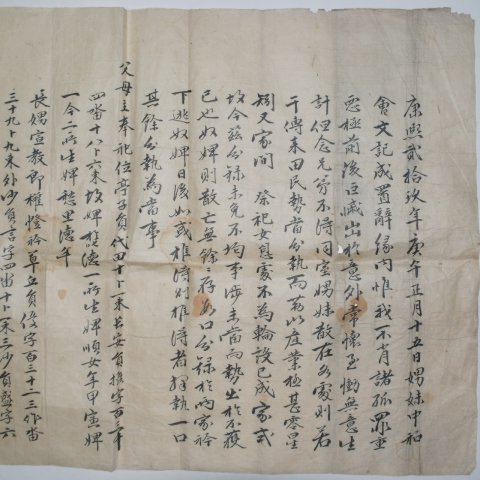 康熙貳拾玖年庚午正月十五日娚妹中和
會文記成置辭緣內惟我不肖諸孤罪重
惡極前後巨戚出於意外常懷至慟無意生
計但念先等不得同室娚妹散在各處則若
干傳來田民勢當分執而第以産業極甚零星
矧又家間祭祀女息處不爲輪設已成家式
故今玆分祿未免不均事涉未當而勢出於不獲
已也奴婢則散亡無餘餘存數口分錄於兩家衿
下逃奴婢日後如或推得則推得者擅執一口
其餘分執爲當事
父母主奉祀位亭子員代田十卜一束長安員推字百三十
四畓十八卜六束故婢禮德一所生婢順女年甲寅婢
一今二所生婢禮里德年
長娚宣教郎權憕衿草丘員後字百三十二三作畓
三十九卜九束外沙員言字四畓十卜束三沙員盤字六